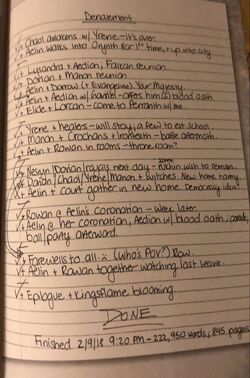 Denouement
Chaol awakens w/ Yrene - it's over.
Aelin walks into Orynth for 1st time, + up into city
Lysandra + Aedion, Falkan reunion.
Dorian + Manon reunion
Aelin + Darrow (+ Evangeline). Your Majesty.
Aelin + Aedion w/ Gavriel - offers him blood oath
Elide + Lorcan - come to Perranth w/ me.
Yrene + healers - will stay, a few to est school
Manon + Crochans + Ironteeth - battle aftermath.
Aelin + Rowan in rooms - throne room?
Nesryn/Dorian/royals next day - some ruhkin wish to remain
Dorian/Chaol/Yrene/Manon + witches. New home
Aelin + court gather in new home. Democracy idea?
Rowan @ Aelin's coronation - week later.
Aelin @ her coronation, Aedion w/ blood oath,
ball/party afterward.
Farewells to all :( (Who's POV?) Row.
Aelin + Rowan together watching last leave.
Epilogue + Kingsflame blooming.
DONE
Finished 2/9/18 9:20 PM - 222,950 words, 845 pages